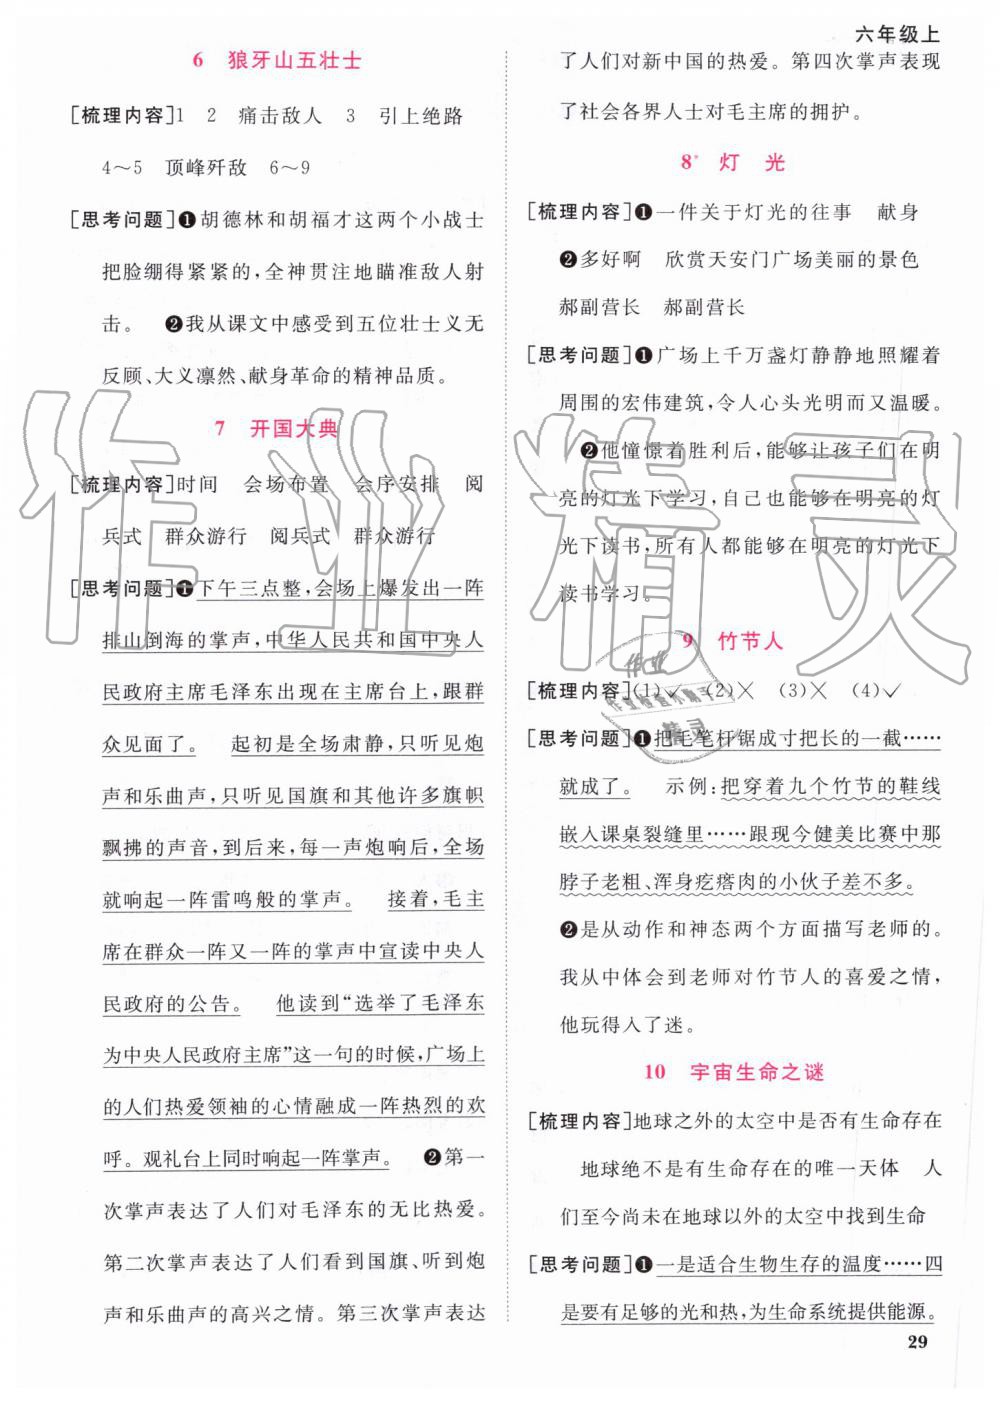 六年级上
6 狼牙山五壮士
[梳理内容]1 2 痛击敌人 3 引上绝路
4～5 顶峰歼敌 6～9
[思考问题]❶胡德林和胡福才这两个小战士
把脸绷得紧紧的,全神贯注地瞄准敌人射
击。 ❷我从课文中感受到五位壮士义无
反顾、大义凛然、献身革命的精神品质。
7 开国大典
[梳理内容]时间 会场布置 会序安排 阅
兵式 群众游行 阅兵式 群众游行
[思考问题]❶下午三点整,会场上爆发出一阵
排山倒海的掌声,中华人民共和国中央人
民政府主席毛泽东出现在主席台上,跟群
众见面了。 起初是全场肃静,只听见炮
声和乐曲声,只听见国旗和其他许多旗帜
飘拂的声音,到后来,每一声炮响后,全场
就响起一阵雷鸣般的掌声。 接着,毛主
席在群众一阵又一阵的掌声中宣读中央人
民政府的公告。 他读到“选举了毛泽东
为中央人民政府主席”这一句的时候,广场上
的人们热爱领袖的心情融成一阵热烈的欢
呼。观礼台上同时响起一阵掌声。 ❷第一
次掌声表达了人们对毛泽东的无比热爱。
第二次掌声表达了人们看到国旗、听到炮
声和乐曲声的高兴之情。第三次掌声表达
了人们对新中国的热爱。第四次掌声表现
了社会各界人士对毛主席的拥护。
8* 灯光
[梳理内容]❶一件关于灯光的往事 献身
❷多好啊 欣赏天安门广场美丽的景色
郝副营长 郝副营长
[思考问题]❶广场上千万盏灯静静地照耀着
周围的宏伟建筑,令人心头光明而又温暖。
❷他憧憬着胜利后,能够让孩子们在明
亮的灯光下学习,自己也能够在明亮的灯
光下读书,所有人都能够在明亮的灯光下
读书学习。
9 竹节人
[梳理内容](1)✓ (2)✕ (3)✕ (4)✓
[思考问题]❶把毛笔杆锯成寸把长的一截……
就成了。 示例:把穿着九个竹节的鞋线
嵌入课桌裂缝里……跟现今健美比赛中那
脖子老粗、浑身疙瘩肉的小伙子差不多。
❷是从动作和神态两个方面描写老师的。
我从中体会到老师对竹节人的喜爱之情,
他玩得入了迷。
10 宇宙生命之谜
[梳理内容]地球之外的太空中是否有生命存在
地球绝不是有生命存在的唯一天体 人
们至今尚未在地球以外的太空中找到生命
[思考问题]❶一是适合生物生存的温度……四
是要有足够的光和热,为生命系统提供能源。
29
作业精灵
作业
精灵